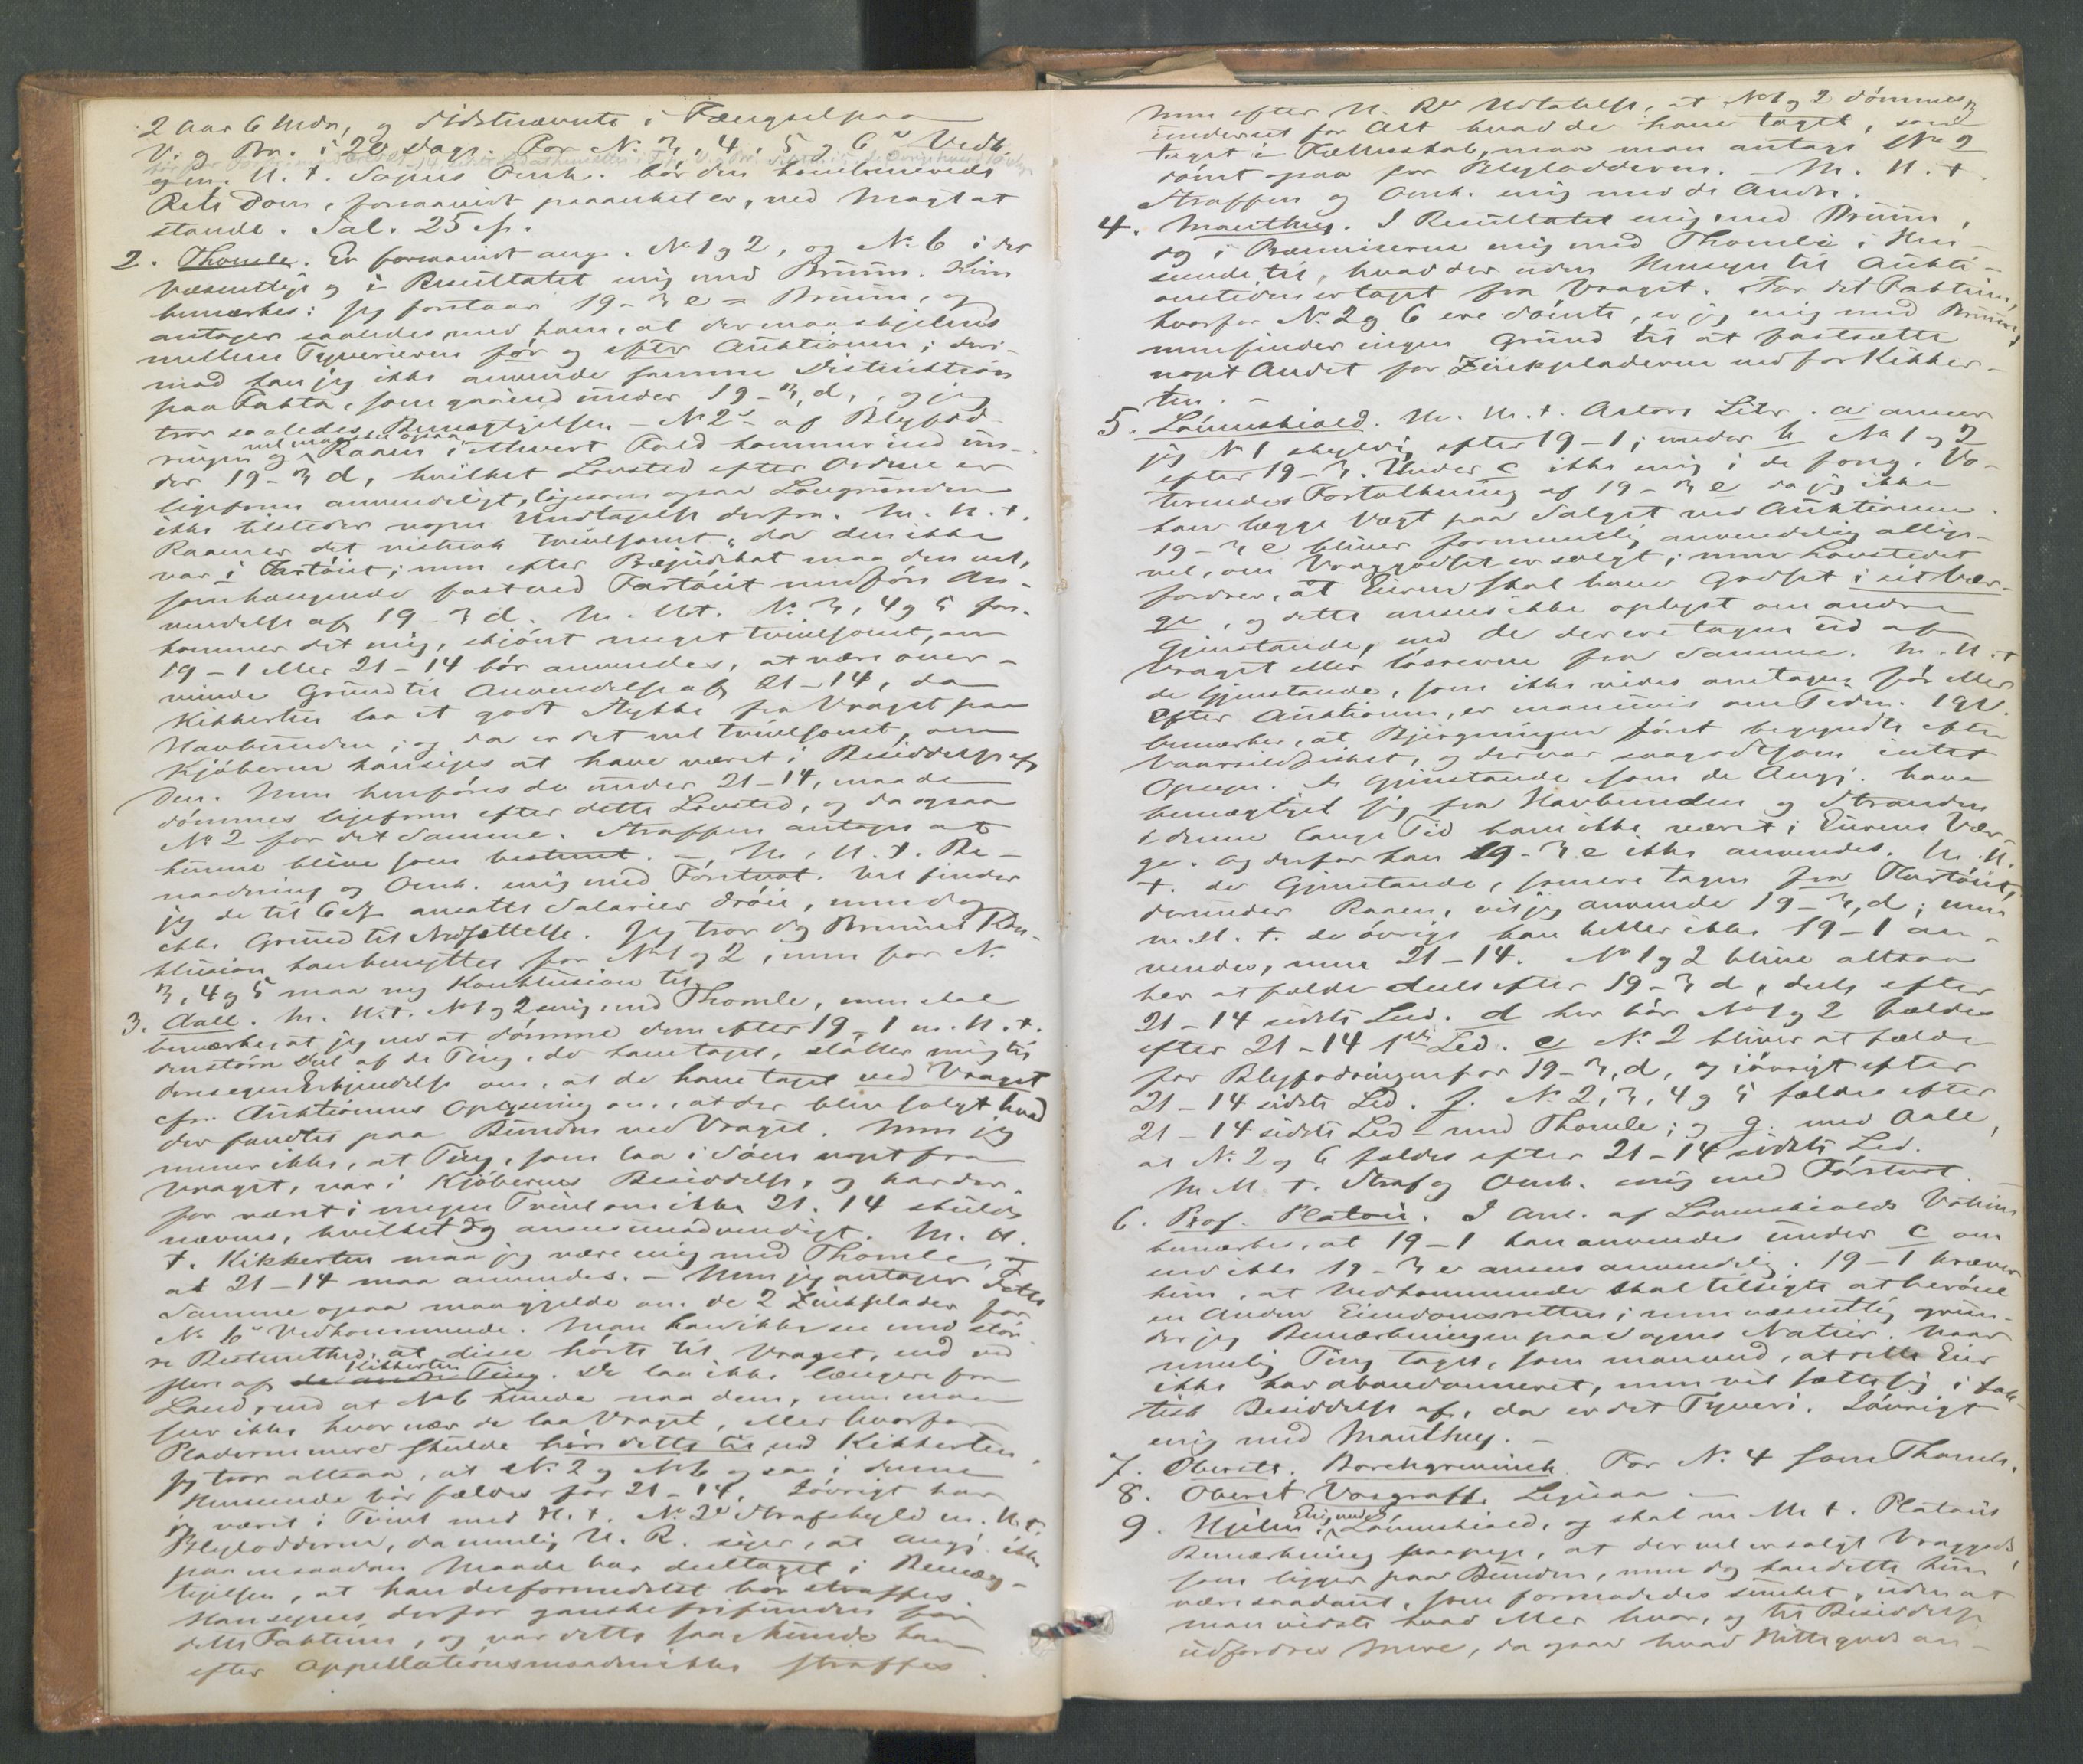 2 Aar 6 Mdr, og Sidstnævnte i Fængsel paa
V. og Br. i 20 Dage. For No 3, 4, 5 og 6s Vedk.
og m. H. t. Sagens Omk. bør den kombinerede
Rets Dom, forsaavidt paaanket er, ved Magt at
stande. Sal. 25 Sp.
2. Thomle. Er forsaavidt ang. No 1 og 2, og No 6 i det
Væsentlige og i Resultatet enig med Bruun. Kun
bemærkes: jeg forstaar 19-3 e = Bruun, og
antager saaledes med ham, at der maa skjelnes
mellem Tyverierne før og efter Auktionen; der-
mod kan jeg ikke anvende samme Distinktion
paa Fakta, som gaar ind under 19-3, d, og jeg
tror saaledes, Bemægtigelsen - No 2s af Blyfod-
ringen og vel maaske ogsaa Raaen i ethvert Fald kommer ind un-
der 19-3 d, hvilket Lovsted efter Ordene er
ligefrem anvendeligt, ligesom ogsaa Lovgrunden
ikke tilsteder nogen Undtagelse derfra. M. H. t.
Raaen er det vistnok tvivlsomt, da den ikke
var i Fartøiet; men efter Præjudikat maa den vel,
som hængende fast ved Fartøiet medføre An-
vendelse af 19-3 d. M. H. t. No 3, 4 og 5 fore-
kommer det mig, skjønt meget tvivlsomt, om
19-1 eller 21-14 bør anvendes, at være over-
veiende Grund til Anvendelse af 21-14, da
Kikkerten laa et godt Stykke fra Vraget paa
Havbunden; og da er det vel tvivlsomt, om
Kjøberen kan siges at have været i Besiddelse af
den. Men henføres de under 21-14, maa de
dømmes ligefrem efter dette Lovsted, og da ogsaa
No 2 for det Samme. Straffen antages at
kunne blive som bestemt. - M. H. t. Be-
naadning og Omk. enig med Førstvot. Vel finder
jeg de til 6 Sp. ansatte Salarier drøie, men dog
ikke Grund til Nedsættelse. Jeg tror dog Bruuns Kon-
klusion kan benyttes for No 1 og 2, men for No
3, 4 og 5 maa ny Konklusion til.
3. Aall. M. H. t. No 1 og 2 enig med Thomle, men skal
bemærke, at jeg ved at dømme dem efter 19-1 m. H. t.
den større Del af de Ting, de have taget, støtter mig til
deres egen Erkjendelse om, at de have taget ved Vraget
cfr. Auktionens Oplysning om, at der blev solgt hvad
der fandtes paa Bunden ved Vraget. Men jeg
mener ikke, at Ting, som laa i Søen noget fra
Vraget, var i Kjøberens Besiddelse, og har der-
for været i megen Tvivl om ikke 21.14 skulde
nævnes, hvilket dog ansees unødvendigt. M. H.
t. Kikkerten maa jeg være enig med Thomle, i
at 21-14 maa anvendes. - Men jeg antager dette
Samme ogsaa maa gjelde om de 2 Zinkplader for
No 6s Vedkommende. Man kan ikke se med stør-
re Bestemthed, at disse hørte til Vraget, end ved
flere af de andre Ting Kikkerten. De laa ikke længere fra
Land end at No 6 kunde naa dem, men man
ser ikke hvor nær de laa Vraget, eller hvorfor
Pladerne mere skulde høre dette til end Kikkerten.
Jeg tror altsaa, at No 2 og No 6 ogsaa i denne
Henseende bør fældes for 21-14. Iøvrigt har
jeg været i Tvivl med H. t. No 2s Strafskyld m. H. t.
Blylodderne, da nemlig U. R. siger, at Angj. ikke
paa nsaadan Maade har deeltaget i Bemæg-
tigelsen, at han desformedelst bør straffes.
Han synes derfor ganske frifunden for
dette Faktum, og var dette saa, kunde han
efter Appellationsmaaden ikke straffes.
Men efter U. Rs Udtalelse, at No 1 og 2 dømmes
underet for Alt hvad de have taget, som
taget i Fællesskab, maa man antage No 2
dømt ogsaa for Blylodderne. - M. H. t.
Straffen og Omk. enig med de Andre.
4. Manthey. I Resultatet enig med Bruun,
og i Præmisserne enig med Thomle i Hen-
seende til, hvad der uden Hensyn til Aukti-
onstiden er taget fra Vraget. For det Faktum,
hvorfor No 2 og 6 ere dømte, er jeg enig med Bruun,
men finder ingen Grund til at fastsætte
noget Andet for Zinkpladerne end for Kikker-
ten. -
5. Løvenskiold. M. H. t. Aktors Litr. a anseer
jeg No 1 skyldig efter 19-1; under b No 1 og 2
efter 19-3. Under c ikke enig i de foreg. Vo-
terendes Fortolkning af 19-3 e da jeg ikke
kan lægge Vægt paa Salget ved Auktionen.
19-3 e bliver formentlig anvendelig allige-
vel, om Vraggodset er solgt; men Lovstedet
fordrer, at Eieren skal have Godset i sit Vær-
ge, og dette ansees ikke oplyst om andre
Gjenstande, end de der ere tagne ud af
Vraget eller løsrevne fra Samme. M. H. t
de Gjenstande, som ikke vides om tagne før eller
efter Auktionen, er man uvis om Tiden. 19V.
bemærker, at Bjergningen først begyndte efter
Vaarsildfisket, og der var saagodtsom intet
Opsyn. De Gjenstande som de Angj. have
bemægtiget sig fra Havbunden og Stranden
i denne lange Tid have ikke været i Eierens Vær-
ge. Og derfor kan 19-3 e ikke anvendes. M. H.
t. de Gjenstande, som ere tagne fra Fartøiet,
derunder Raaen, vil jeg anvende 19-3, d; men
m. H. t. de øvrige kan heller ikke 19-1 an-
vendes, men 21-14. No 1 og 2 blive altsaa
her at fælde deels efter 19-3 d, deels efter
21-14 sidste Led. d her bør No 1 og 2 fældes
efter 21-14 1ste Led. e No 2 bliver at fælde
for Blyfodringen for 19-3, d, og iøvrigt efter
21-14 sidste Led. f. No 2, 3, 4 og 5 fældes efter
21-14 sidste Led - med Thomle; og g. med Aall,
at No 2 og 6 fældes efter 21-14 sidste Led.
M. H. t. Straf og Omk. enig med Førstvot.
6. Prof. Platou. I Anl. af Løvenskiolds Votum
bemærkes, at 19-1 kan anvendes under c om
end ikke 19-3 e ansees anvendelig. 19-1 kræver
kun, at Vedkommende skal tilsigte at berøve
en Anden Eiendomsretten; men væsentlig grun-
der jeg Bemærkningen paa Sagens Natur. Naar
nemlig Ting tages, som man ved, at rette Eier
ikke har abandonneret, men vil sætte sig i fak-
tisk Besiddelse af, da er det Tyveri. Iøvrigt
enig med Manthey. -
7. Oberstl. Borchgrevinck For No 4 som Thomle.
8. Oberst Vosgraff. Ligesaa -
9. Hjelm. Enig med Løvenskiold, og skal m. H. t. Platous
Bemærkning paapege, at der vel er solgt Vraggods,
som ligger paa Bunden, men dog kan dette kun
være saadant, som formodedes sunket, uden at
man vidste hvad eller hvor, og til Besiddelse
udfordres mere, da ogsaa hvad Hittegods an-